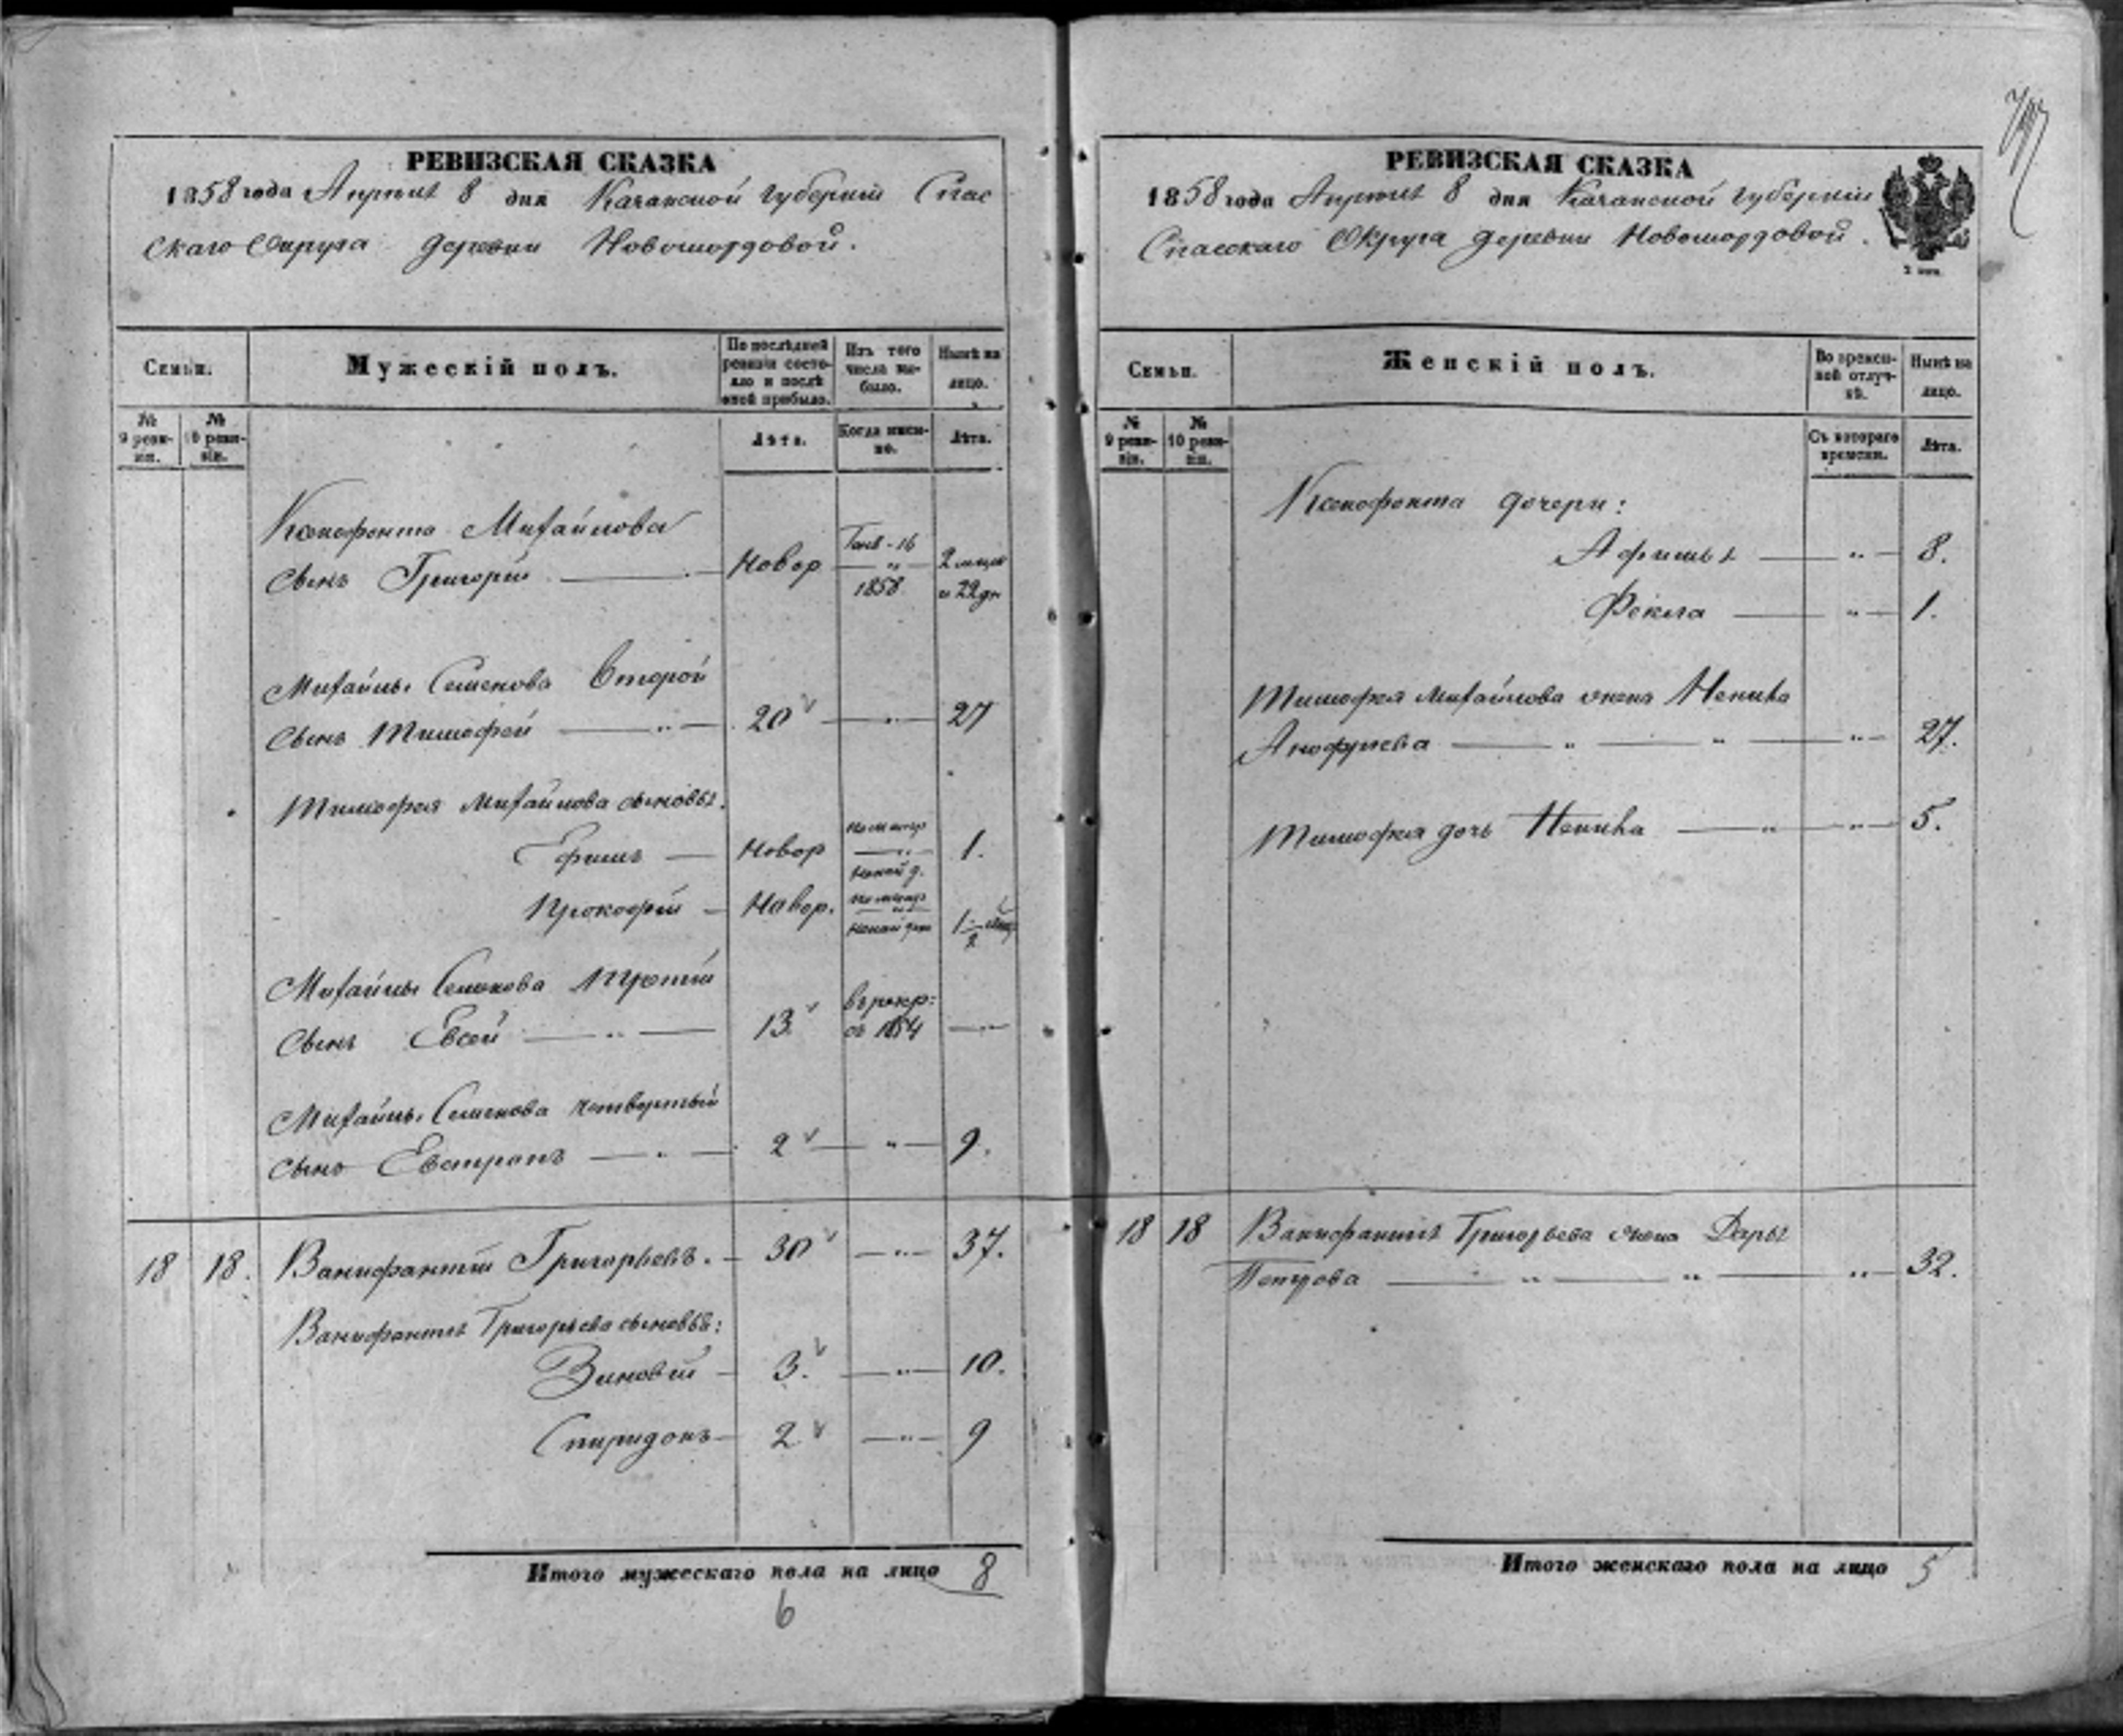 РЕВИЗСКАЯ СКАЗКА
1858 года Апреля 8 дня Казанской губернии Спас
скаго Округа деревни Новомордовой.
Семьи.
Мужескій полъ.
По послѣдней ревизіи состояло и послѣ оной прибыло.
Изъ того числа выбыло.
Нынѣ на лицо.
№ 9 ревизіи.
№ 10 ревизіи.
Лѣта.
Когда именно.
Лѣта.
Ксенофонта Михайлова
сынъ Григорій Новор Генв - 16 1858 2 мѣсяц и 22 дн
Михайлы Семенова Второй
сынъ Тимофей 20 27
Тимофея Михайлова сыновья.
Ефимъ Новор 1.
Прокофій Новор. 1
Михайлы Семенова Третій
сынъ Евсей 13. въ рекр: съ 1854
Михайлы Семенова четвертый
сынъ Евстратъ 2 9.
18 18. Ванифантій Григорьевъ. 30 37.
Ванифантія Григорьева сыновья:
Зиновій 3. 10.
Спиридонъ 2 9
Итого мужескаго пола на лицо 8
6
РЕВИЗСКАЯ СКАЗКА
1858 года Апреля 8 дня Казанской губерніи
Спасскаго Округа деревни Новомордовой.
Семьи.
Женскій полъ.
Во временной отлучкѣ.
Нынѣ на лицо.
№ 9 ревизіи.
№ 10 ревизіи.
Съ котораго времени.
Лѣта.
Ксенофонта дочери:
Афимья 8.
Фекла 1.
Тимофея Михайлова жена Ненила
Анофріева 27.
Тимофея дочь Ненила 5.
18 18 Ванифантія Григорьева жена Дарья
Петрова 32.
Итого женскаго пола на лицо 5